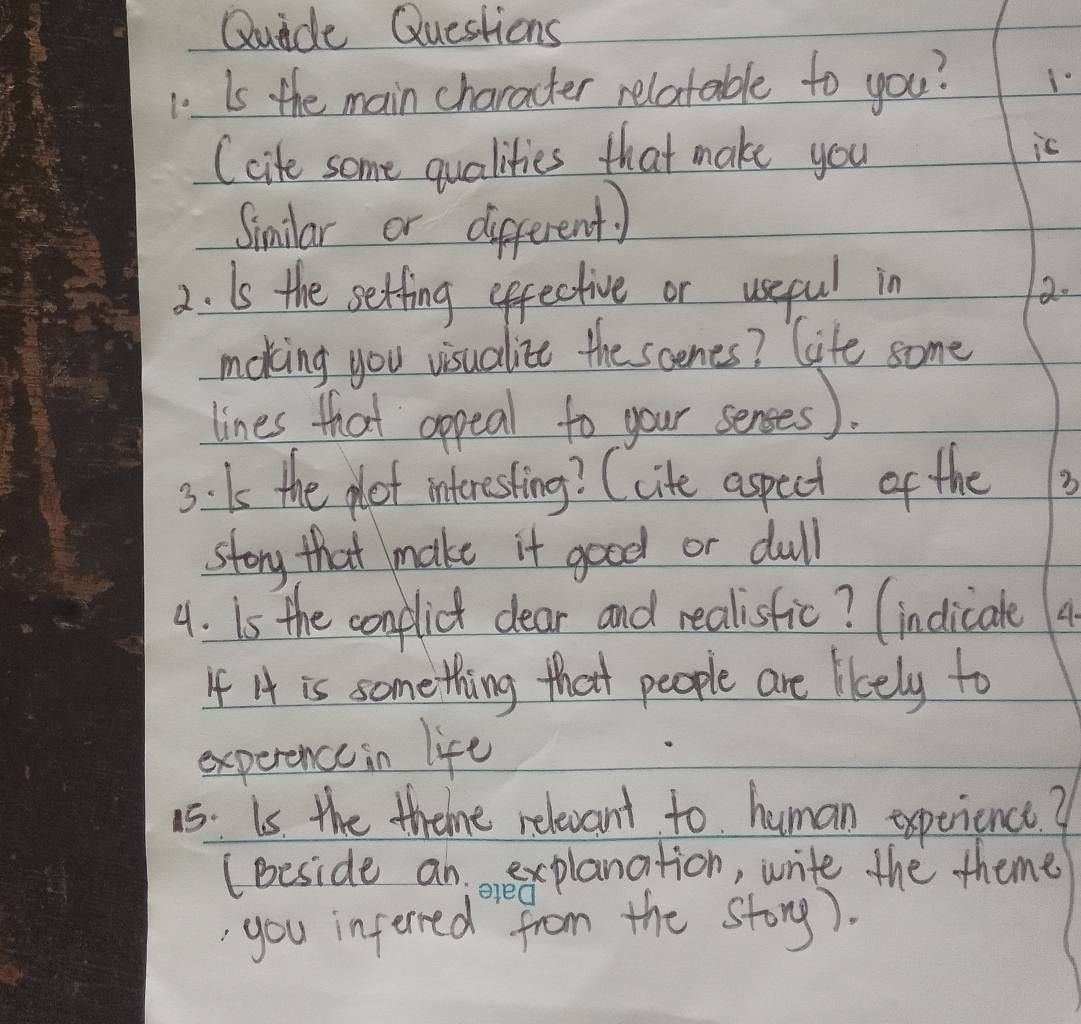 Quide Questions
1. Is the main character relatable to you? 1.
(cite some qualities that make you is
Similar or different.)
2. Is the setting effective or useful in 2.
making you visualize the scenes? (cite some
lines that appeal to your senses).
3. Is the plot interesting? (cite aspect of the 3
story that make it good or dull
4. Is the conflict clear and realistic? (indicate 4.
If it is something that people are likely to
experence in life
15. Is the theme relevant to human experience?
(Beside an explanation, write the theme
Date
you inferred from the story).